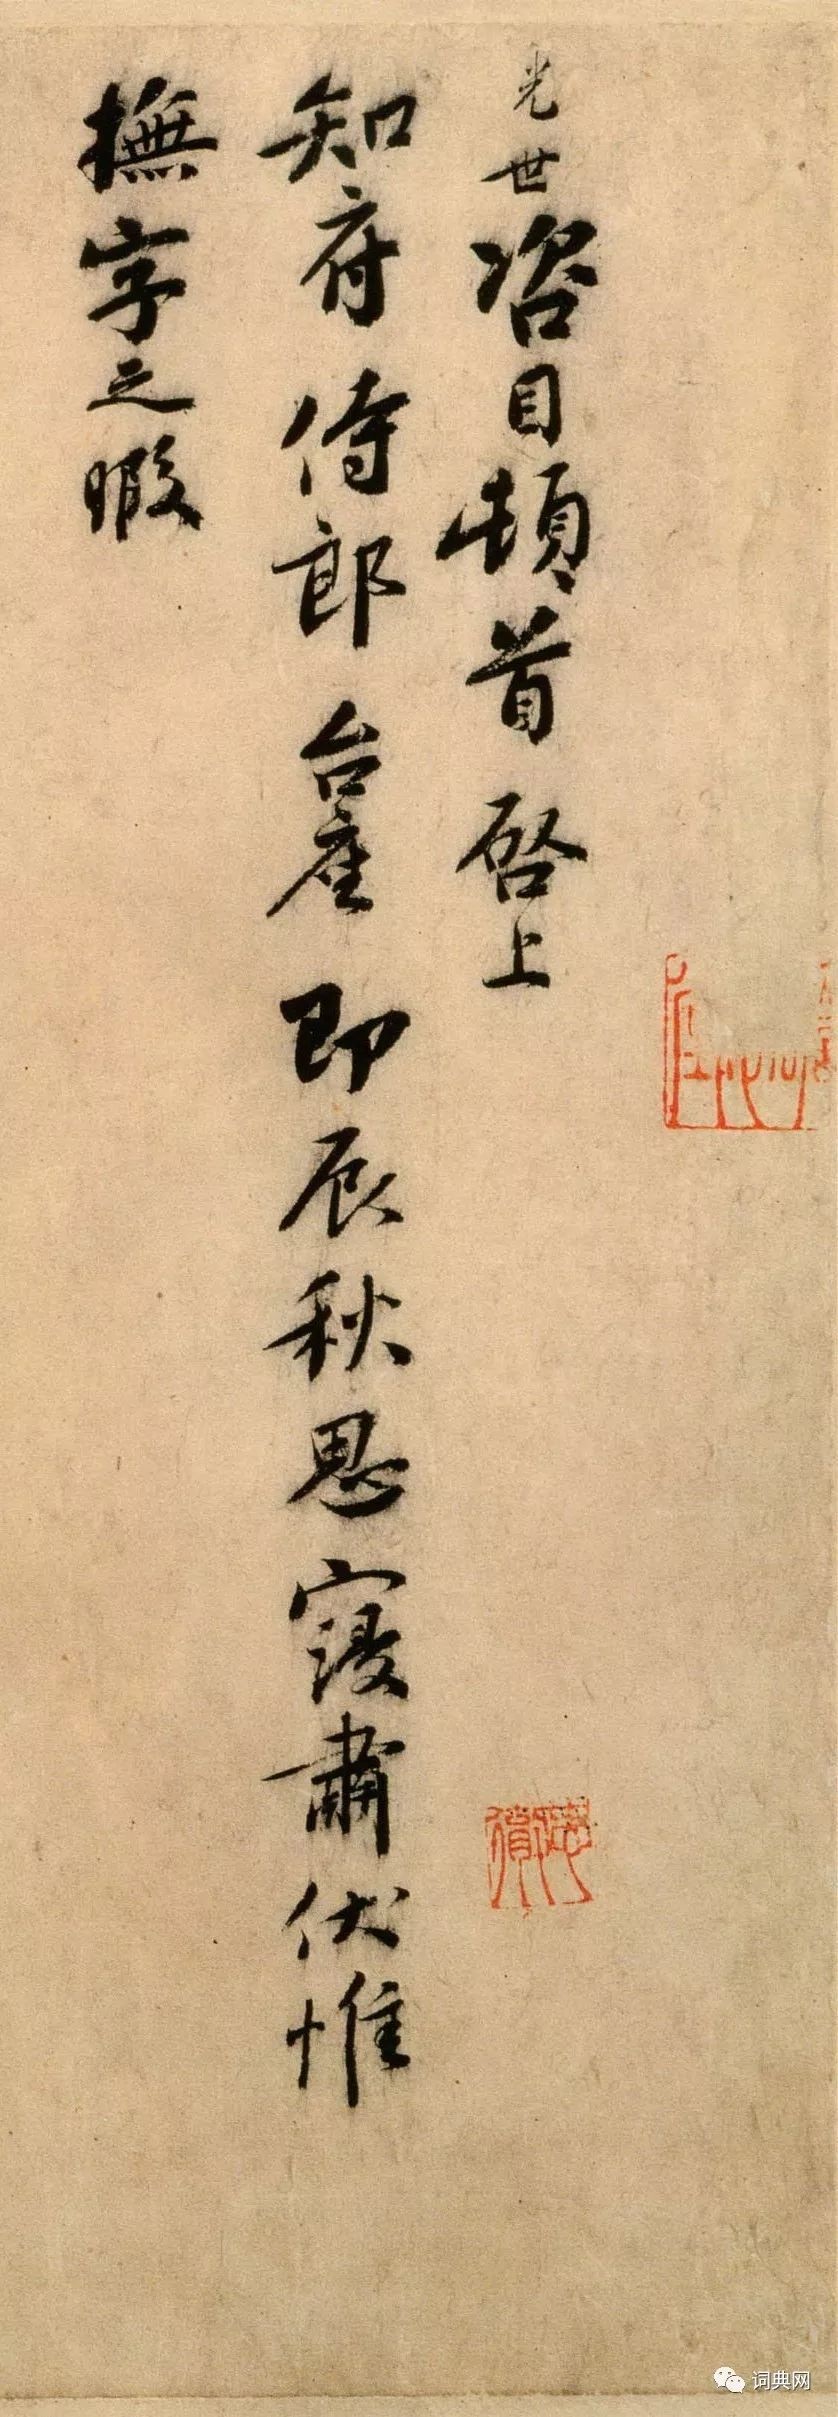 光世咨目頓首啓上
知府侍郎台座即辰秋思寖肅伏惟
撫字之暇
词典网